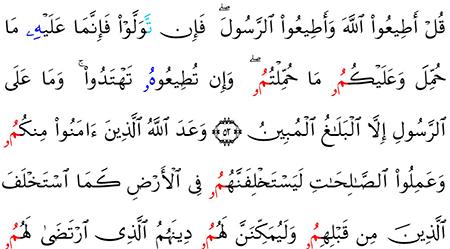 قُلْ أَطِيعُوا۟ ٱللَّهَ وَأَطِيعُوا۟ ٱلرَّسُولَۖ فَإِن تَّوَلَّوْا۟ فَإِنَّمَا عَلَيْهِۦ مَا
حُمِّلَ وَعَلَيْكُمُۥ مَا حُمِّلْتُمُۥۖ وَإِن تُطِيعُوهُۥ تَهْتَدُوا۟ۚ وَمَا عَلَى
ٱلرَّسُولِ إِلَّا ٱلْبَلَٰغُ ٱلْمُبِينُ ۝٥٢ وَعَدَ ٱللَّهُ ٱلَّذِينَ ءَامَنُوا۟ مِنكُمُۥ
وَعَمِلُوا۟ ٱلصَّٰلِحَٰتِ لَيَسْتَخْلِفَنَّهُمُۥ فِى ٱلْأَرْضِ كَمَا ٱسْتَخْلَفَ
ٱلَّذِينَ مِن قَبْلِهِمُۥ وَلَيُمَكِّنَنَّ لَهُمُۥ دِينَهُمُ ٱلَّذِى ٱرْتَضَىٰ لَهُمُۥ